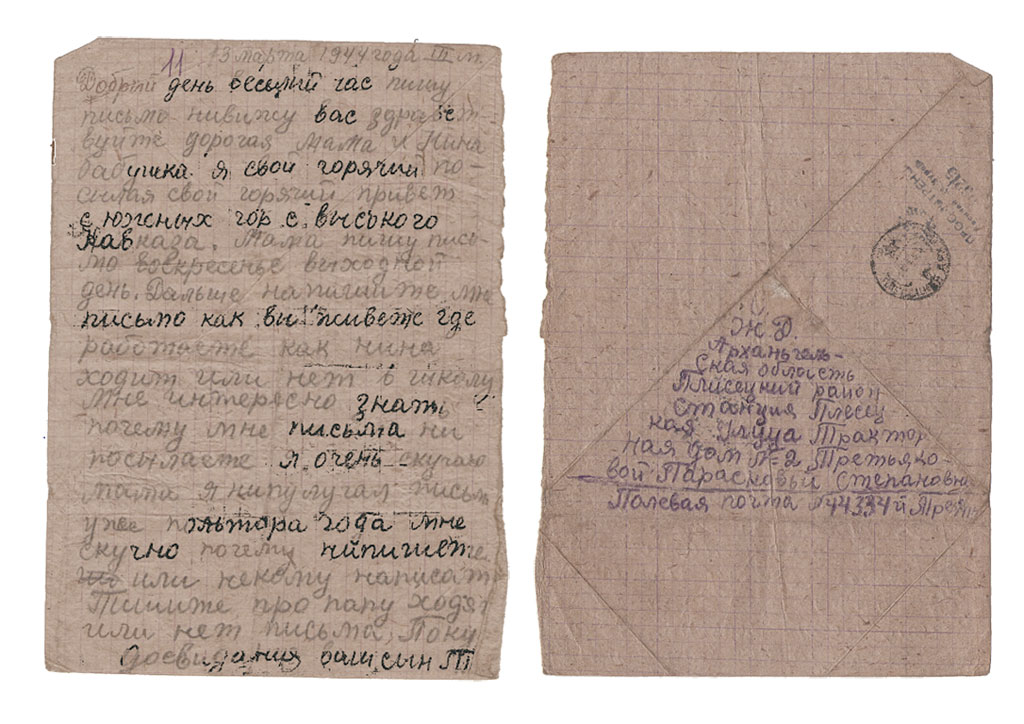 11 13 марта 1944 года III м.
Добрый день веселый час пишу
письмо нивижу вас здравст
вуйте дорогая мама и Нина
бабушка я свой горячий по-
сылая свой горячий привет
с южных гор с выського
Кавказа. Мама пишу пись-
мо воскресенье выходной
день. Дальше напишите мне
письмо как ви живете где
работаете как нина
ходит или нет в школу
мне интересно знать
почему мне письма ни
посылаете я очень скучаю
мама я нипулучал письм
уже польтора года мне
скучно почему нипишете
или некому написать
Пишите про папу ходят
или нет письма, Поку
досвидания ваш сын Т
Ж Д.
Архангель-
ская область
Плисецкий район
станция Плесец
кая улуца Трактор
ная дом №2 Третьяко-
вой Парасковьи Степановны
Полевая почта №44334й
ПРОСМОТРЕНО